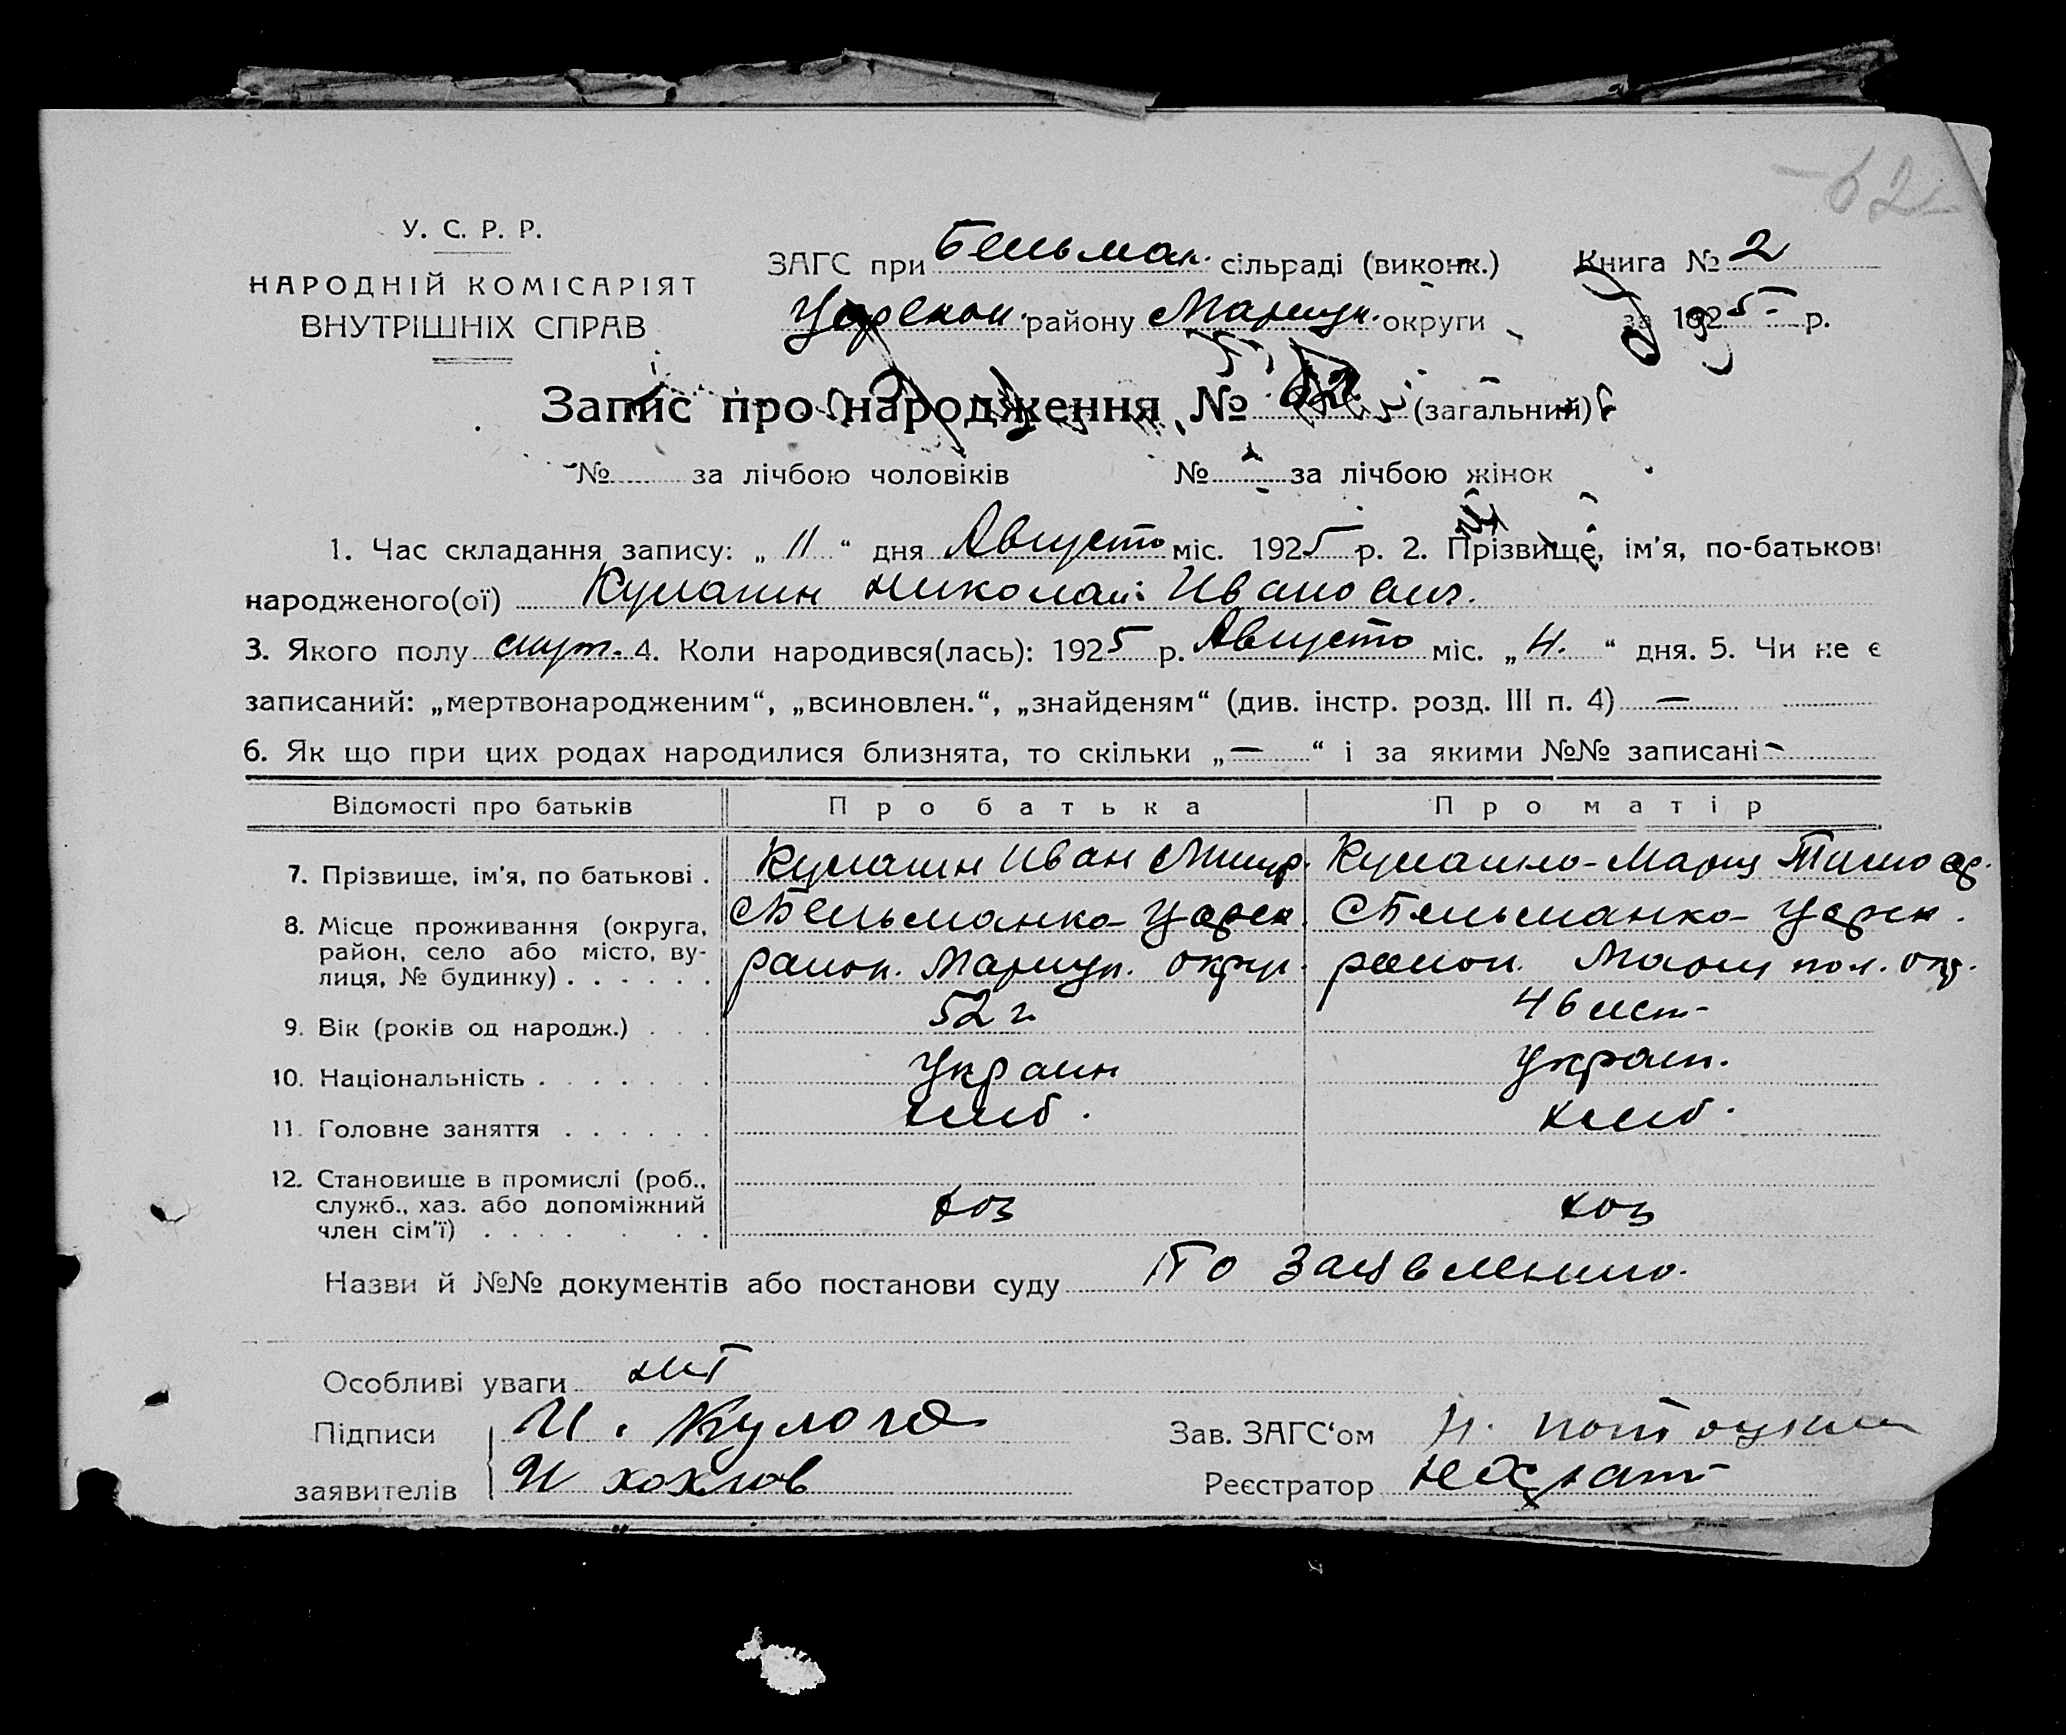 62
У. С. Р. Р.
НАРОДНІЙ КОМІСАРІЯТ
ВНУТРІШНІХ СПРАВ
ЗАГС при Бельман. сільраді (виконк.) Книга № 2
Царекон. району Мариуп. округи за 1925 р.
Запис про народження № 62 (загальний)
№ за лічбою чоловіків № за лічбою жінок
1. Час складання запису: „ 11 “ дня Августа міс. 1925 р. 2. Прізвище, ім'я, по-батькові
народженого(ої) Кулагин Николай Иванович.
3. Якого полу муж. 4. Коли народився(лась): 1925 р. Августа міс. „ 4. “ дня. 5. Чи не є
записаний: „мертвонародженим“, „всиновлен.“, „знайденям“ (див. інстр. розд. III п. 4) —
6. Як що при цих родах народилися близнята, то скільки „ — “ і за якими №№ записані —
Відомості про батьків Про батька Про матір
7. Прізвище, ім'я, по батькові . Кулагин Иван Кулагина Мария
8. Місце проживання (округа, район, село або місто, вулиця, № будинку) . . . . . . С Бельманка Царек. район. Мариуп. округ. С Бельманка Царек. район. Мариупол. окр.
9. Вік (років од народж.) . . . 52 г. 46 лет
10. Національність . . . . . . . Украин Украин.
11. Головне заняття . . . . . . хлеб. хлеб.
12. Становище в промислі (роб., служб., хаз. або допоміжний член сім'ї) . . . . . . . хоз хоз
Назви й №№ документів або постанови суду По заявлению.
Особливі уваги нет
Підписи И. Кулага Зав. ЗАГС'ом
заявителів И Хохлов Реєстратор